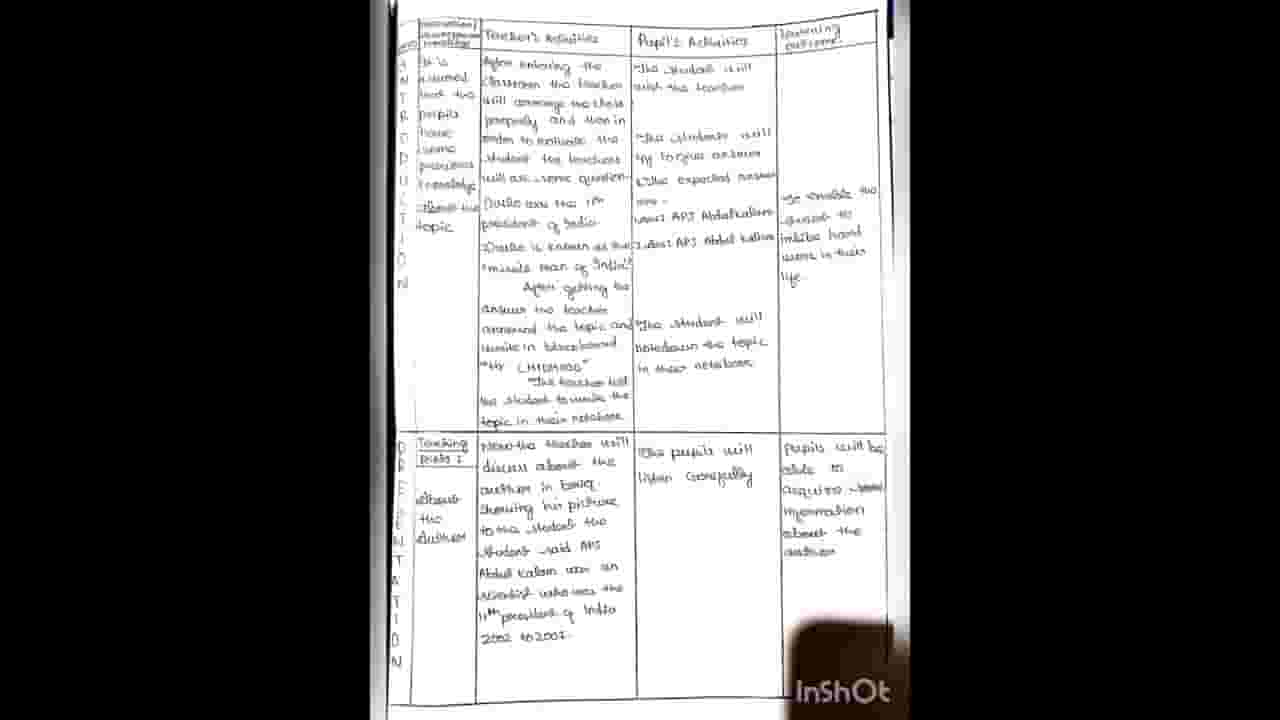 Teacher's Activities
Pupil's Activities
Learning
outcome
INTRODUCTION
It is
assumed
that the
pupils
have
some
previous
knowledge
about the
topic
After entering the
classroom the teacher
will arrange the class
properly and then in
order to evaluate the
student the teachers
will ask some question
the 11th
president of India
is known as the
missile man of India?
After getting the
answer the teacher
announced the topic and
write in blackboard
"My
The teacher tell
the student to write the
topic in their notebook
The student will
wish the teacher
The students will
try to give answer
The expected answer
are -
APJ Abdul Kalam
APJ Abdul Kalam
The student will
notedown the topic
in their notebook
To enable the
to
imbibe hard
work in their
life.
PRESENTATION
Teaching
Point:
About
the
Author
Now the teacher will
discuss about the
author in
showing his picture
to the student the
student said APJ
Abdul Kalam was an
scientist who was the
11th president of India
2002 to 2007.
The pupils will
listen carefully
Pupils will be
able to
acquire
information
about the
author
InShOt